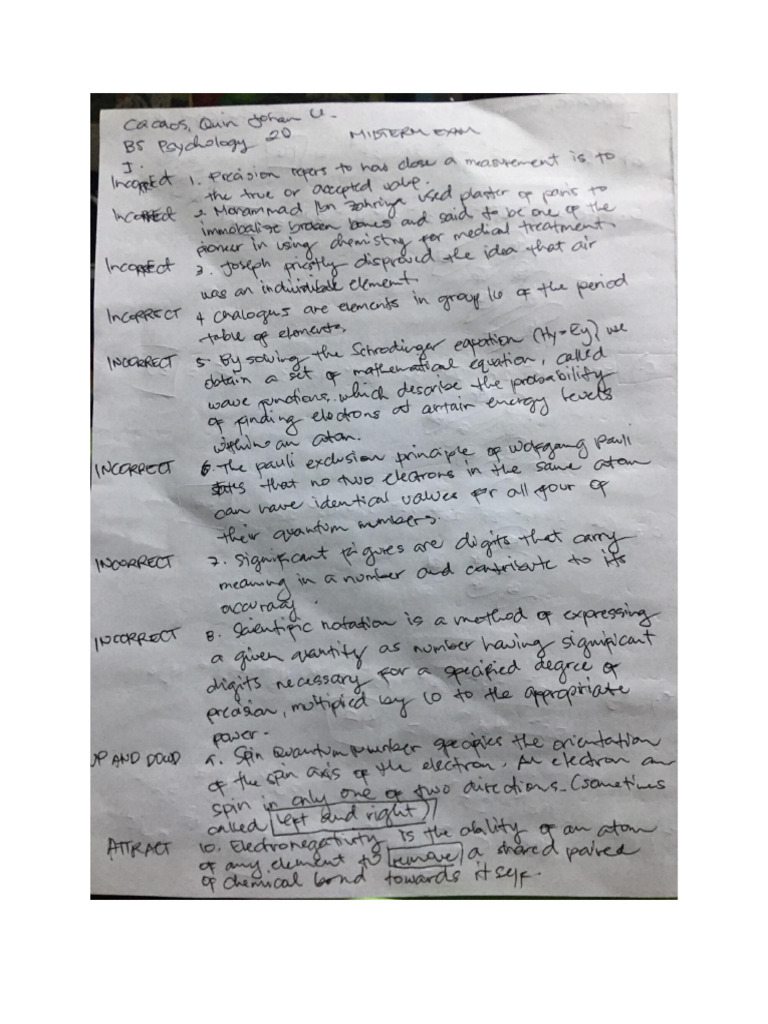 Cacaos, Quin Johan U.
BS Psychology 2D MIDTERM EXAM
I.
Incorrect 1. Precision refers to how close a measurement is to
the true or accepted value.
Incorrect 2. Mohammad Ibn Zakriya used plaster of paris to
immobalise broken bones and said to be one of the
pioneer in using chemistry for medical treatment.
Incorrect 3. Joseph pristly disproved the idea that air
was an indivisible element.
INCORRECT 4 Chalogens are elements in group 16 of the period
table of elements.
INCORRECT 5. By solving the Schrodinger equation (Hy=Ey) we
obtain a set of mathematical equation, called
wave functions, which describe the probability
of finding electrons at certain energy levels
within an atom.
INCORRECT 6. The pauli exclusion principle of Wolfgang Pauli
states that no two electrons in the same atom
can have identical values for all four of
their quantum numbers.
INCORRECT 7. Significant figures are digits that carry
meaning in a number and contribute to its
accuracy.
INCORRECT 8. Scientific notation is a method of expressing
a given quantity as number having significant
digits necessary for a specified degree of
precision, multipied by 10 to the appropriate
power.
UP AND DOWD 9. Spin Quantum number specifies the orientation
of the spin axis of the electron. An electron can
spin in only one of two directions. (sometimes
called left and right)
ATTRACT 10. Electronegativity is the ability of an atom
of any element to remove a shared paired
of chemical bond towards itself.